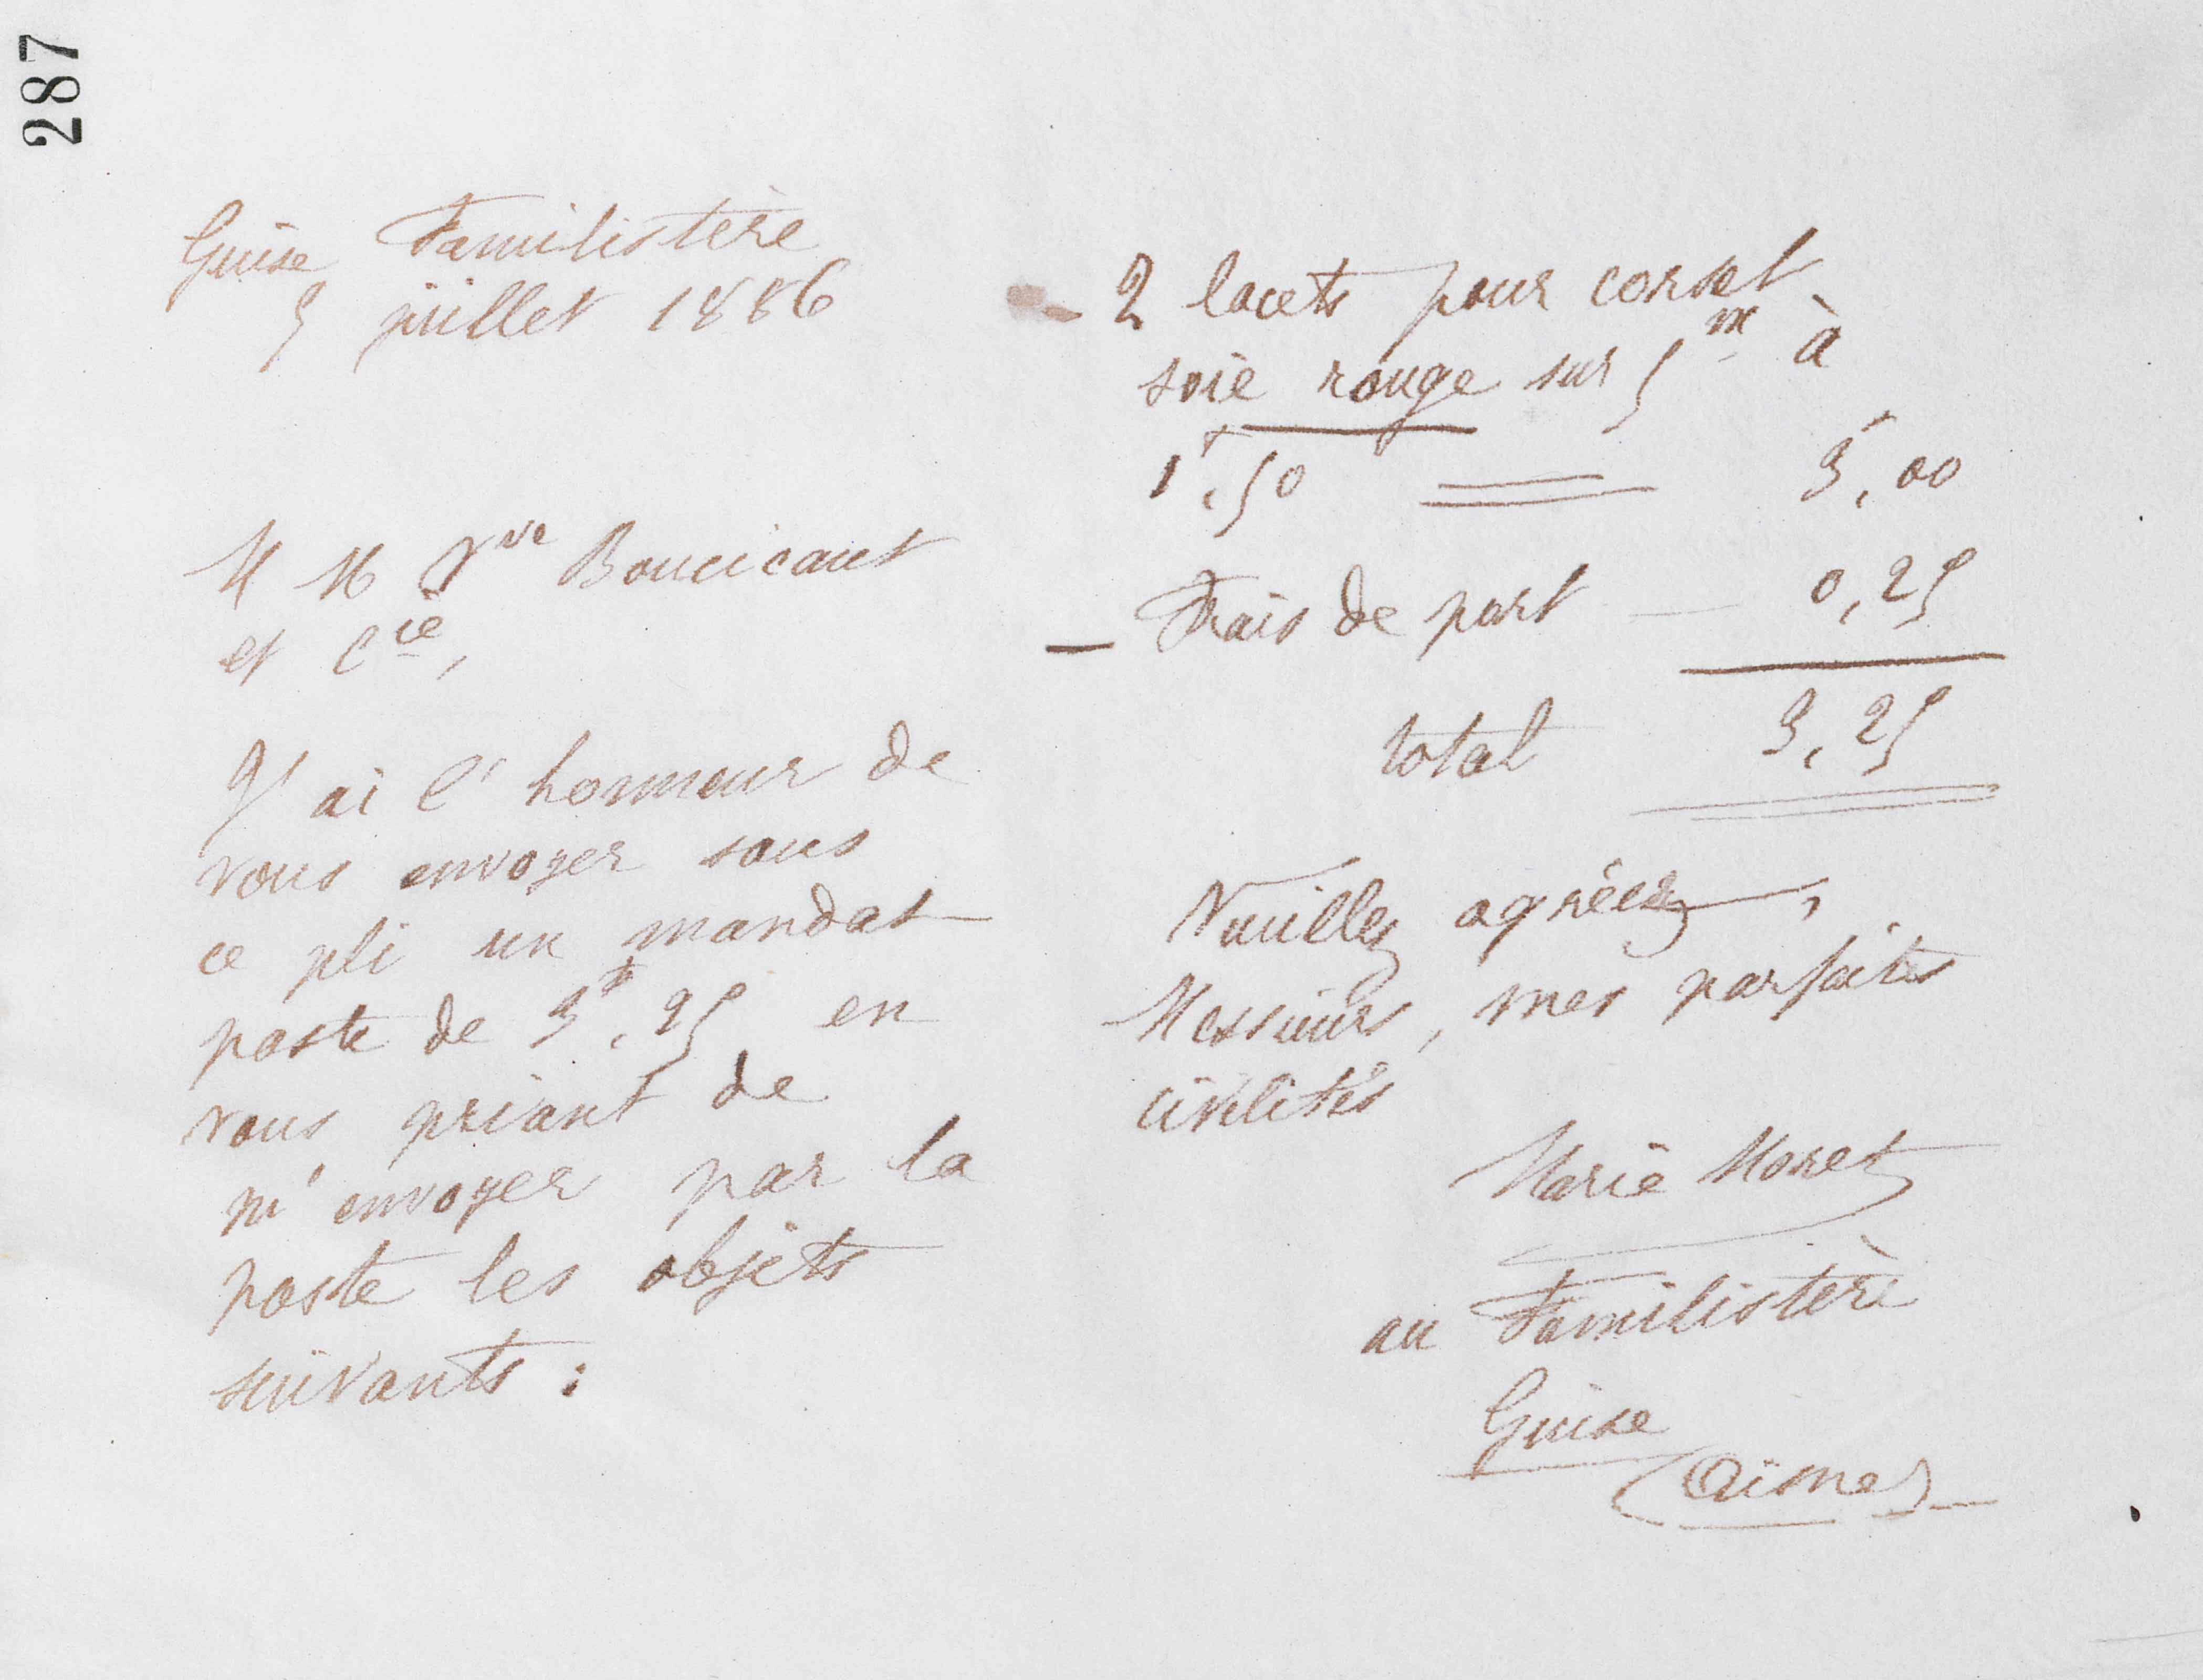 287
Guise Familistère
5 juillet 1886
M M Vve Boucicaut
et Cie,
J'ai l'honneur de
vous envoyer sous
ce pli un mandat
poste de 3f,25 en
vous priant de
m'envoyer par la
poste les objets
suivants :
- 2 lacets pour corset
soie rouge sur 5m à
1f,50 = 3,00
- Frais de port — 0,25
total 3,25
Veuillez agréer,
Messieurs, mes parfaites
civilités
Marie Moret
au Familistère
Guise
(Aisne)